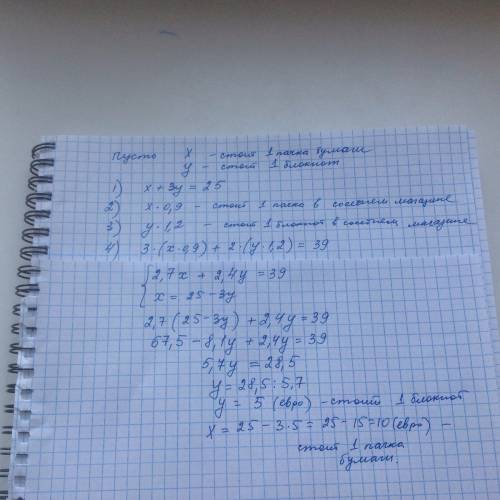 Пусть X - стоит 1 пачка бумаги
y - стоит 1 блокнот
1) x + 3y = 25
2) x·0,9 - стоит 1 пачка в соседнем магазине
3) y·1,2 - стоит 1 блокнот в соседнем магазине
4) 3·(x·0,9) + 2·(y·1,2) = 39
{ 2,7x + 2,4y = 39
x = 25 - 3y
2,7(25-3y) + 2,4y = 39
67,5 - 8,1y + 2,4y = 39
5,7y = 28,5
y = 28,5 : 5,7
y = 5 (евро) - стоит 1 блокнот
x = 25 - 3·5 = 25 - 15 = 10 (евро) -
стоит 1 пачка
бумаги.